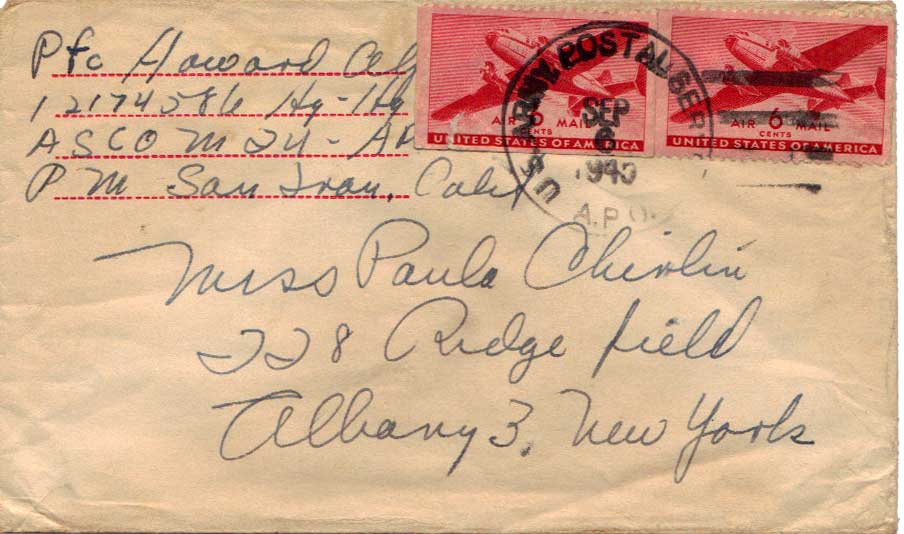 Pfc Howard
12174586 Hq-Hq
ASCOM 24-AP
PM San Fran, Calif
AIR 6 MAIL
CENTS
UNITED STATES OF AMERICA
AIR 6 MAIL
CENTS
UNITED STATES OF AMERICA
U.S. ARMY POSTAL SER
SEP
6
1945
A.P.O.
Miss Paula Chirlin
228 Ridge field
Albany 3, New York